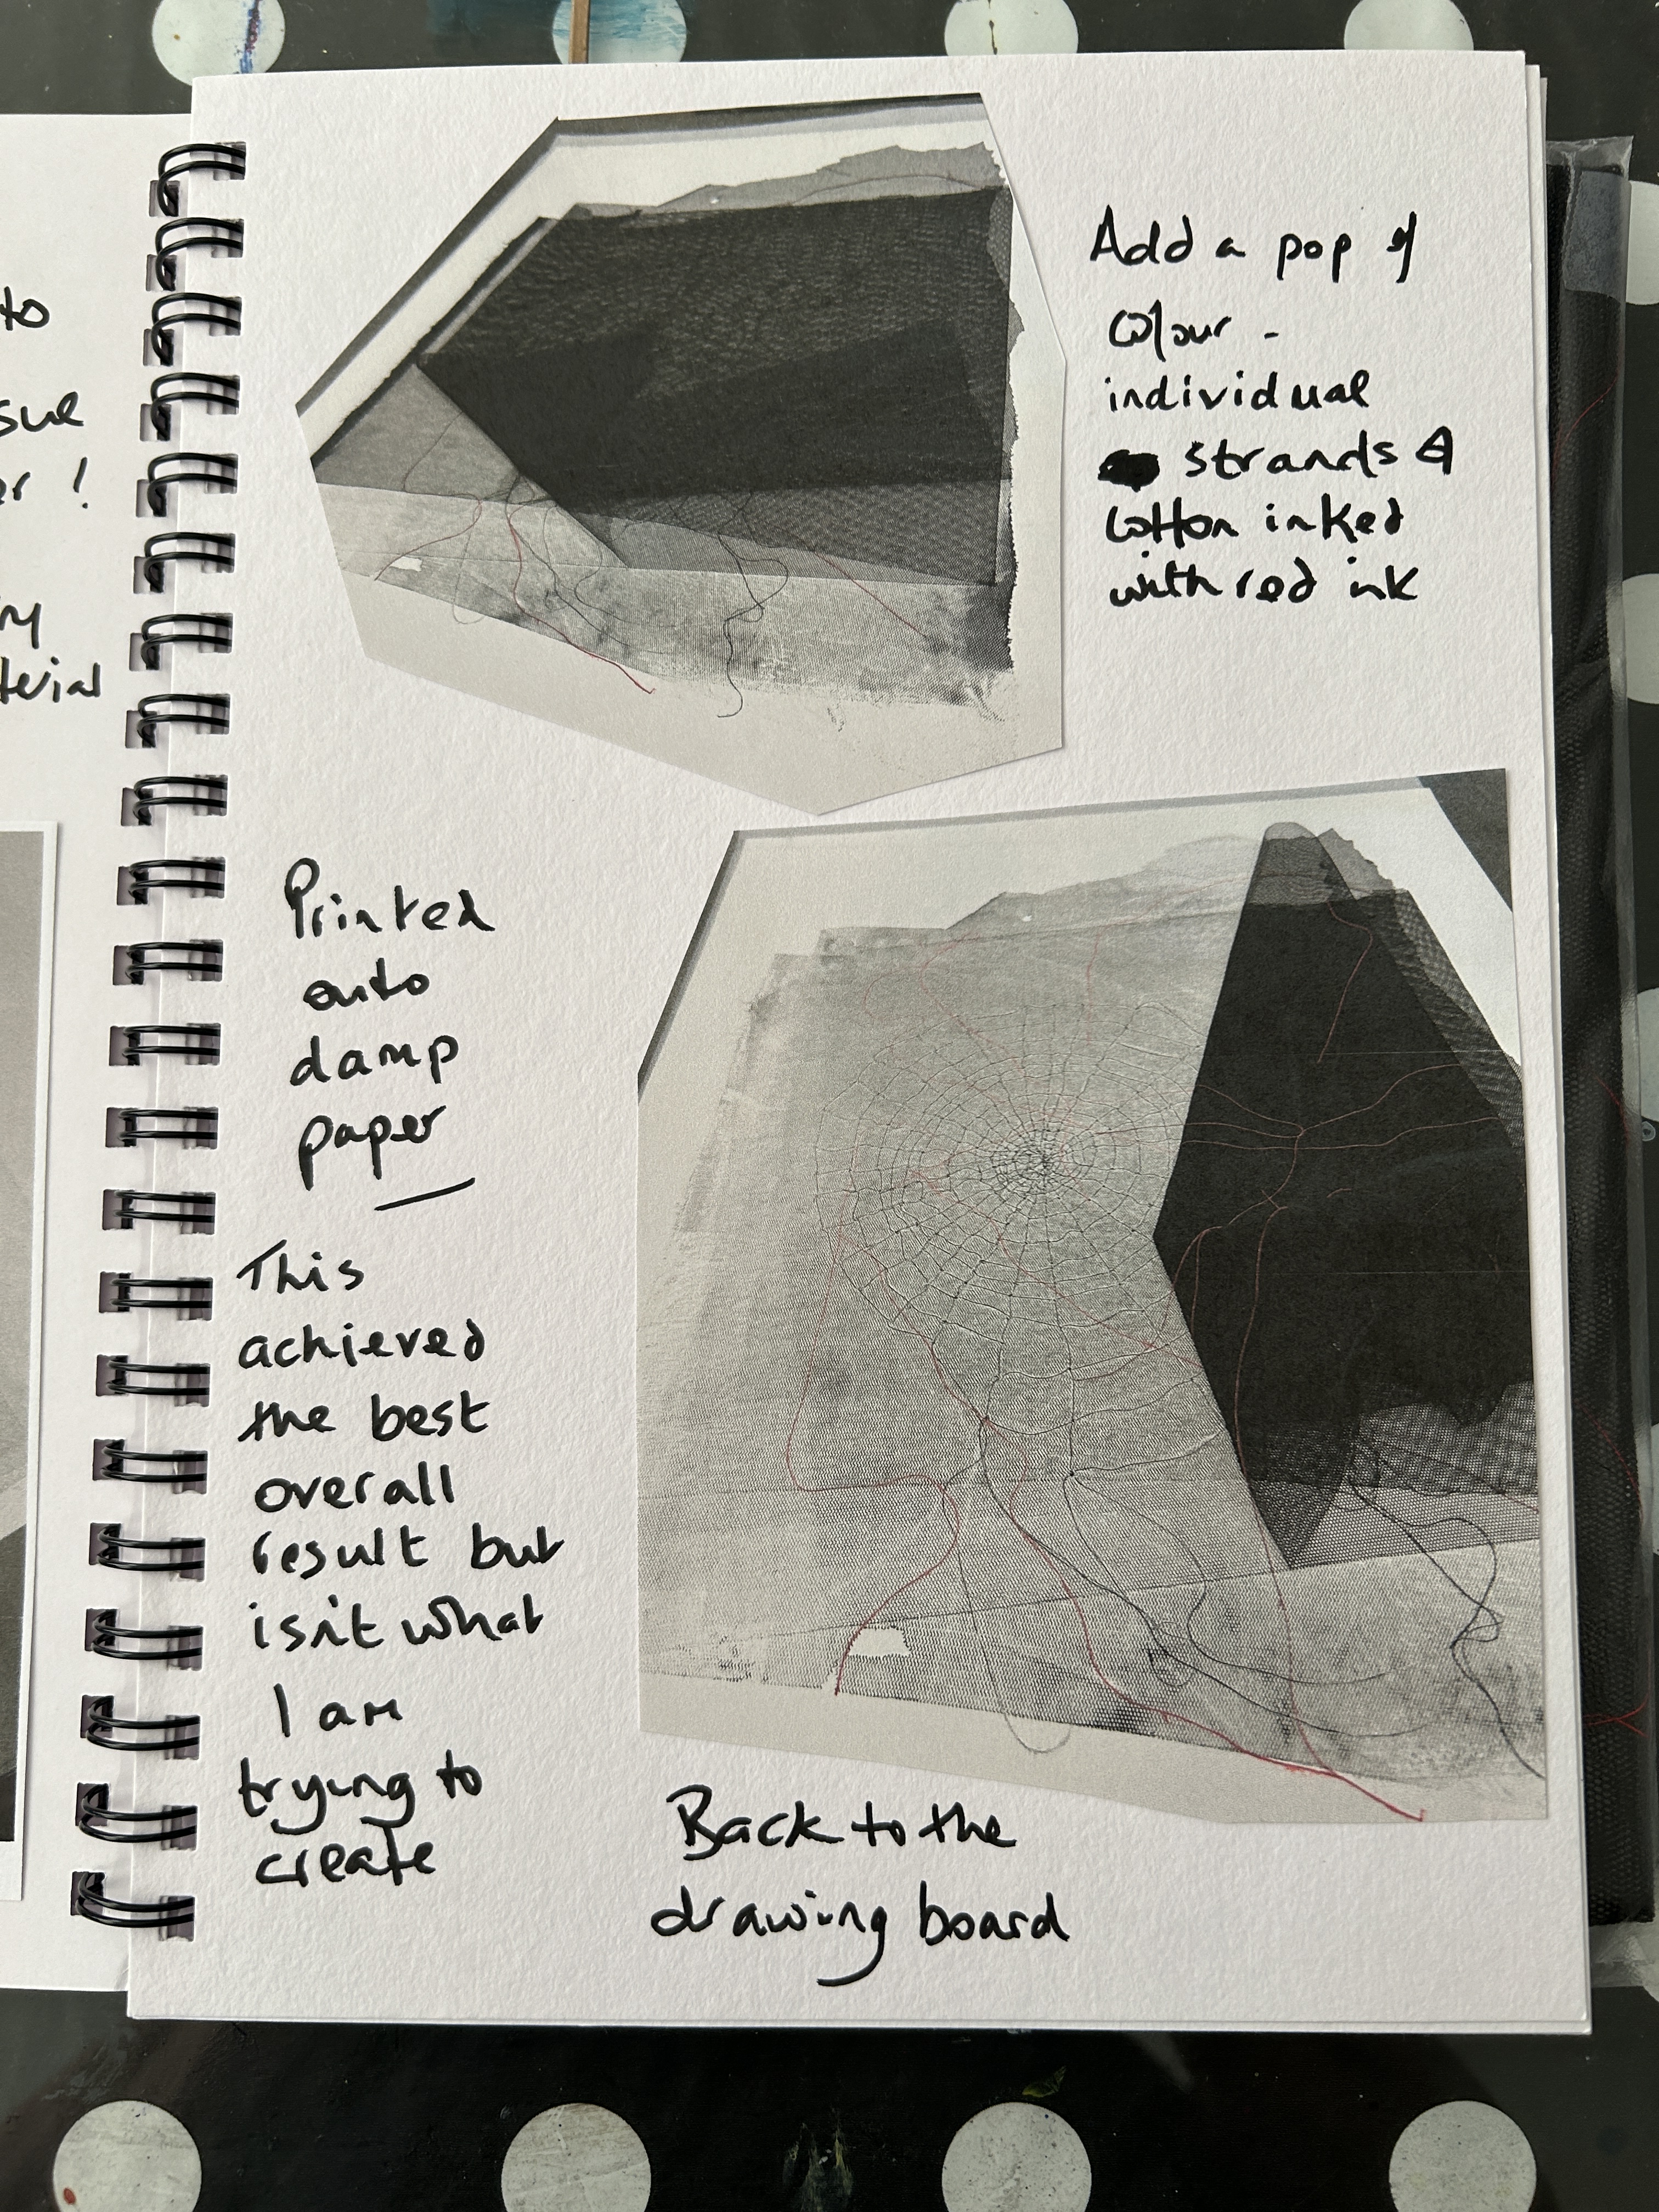 to
sue
er !
ry
terial
Add a pop of
colour -
individual
strands of
cotton inked
with red ink
Printed
onto
damp
paper
This
achieved
the best
overall
result but
isn't what
I am
trying to
create
Back to the
drawing board